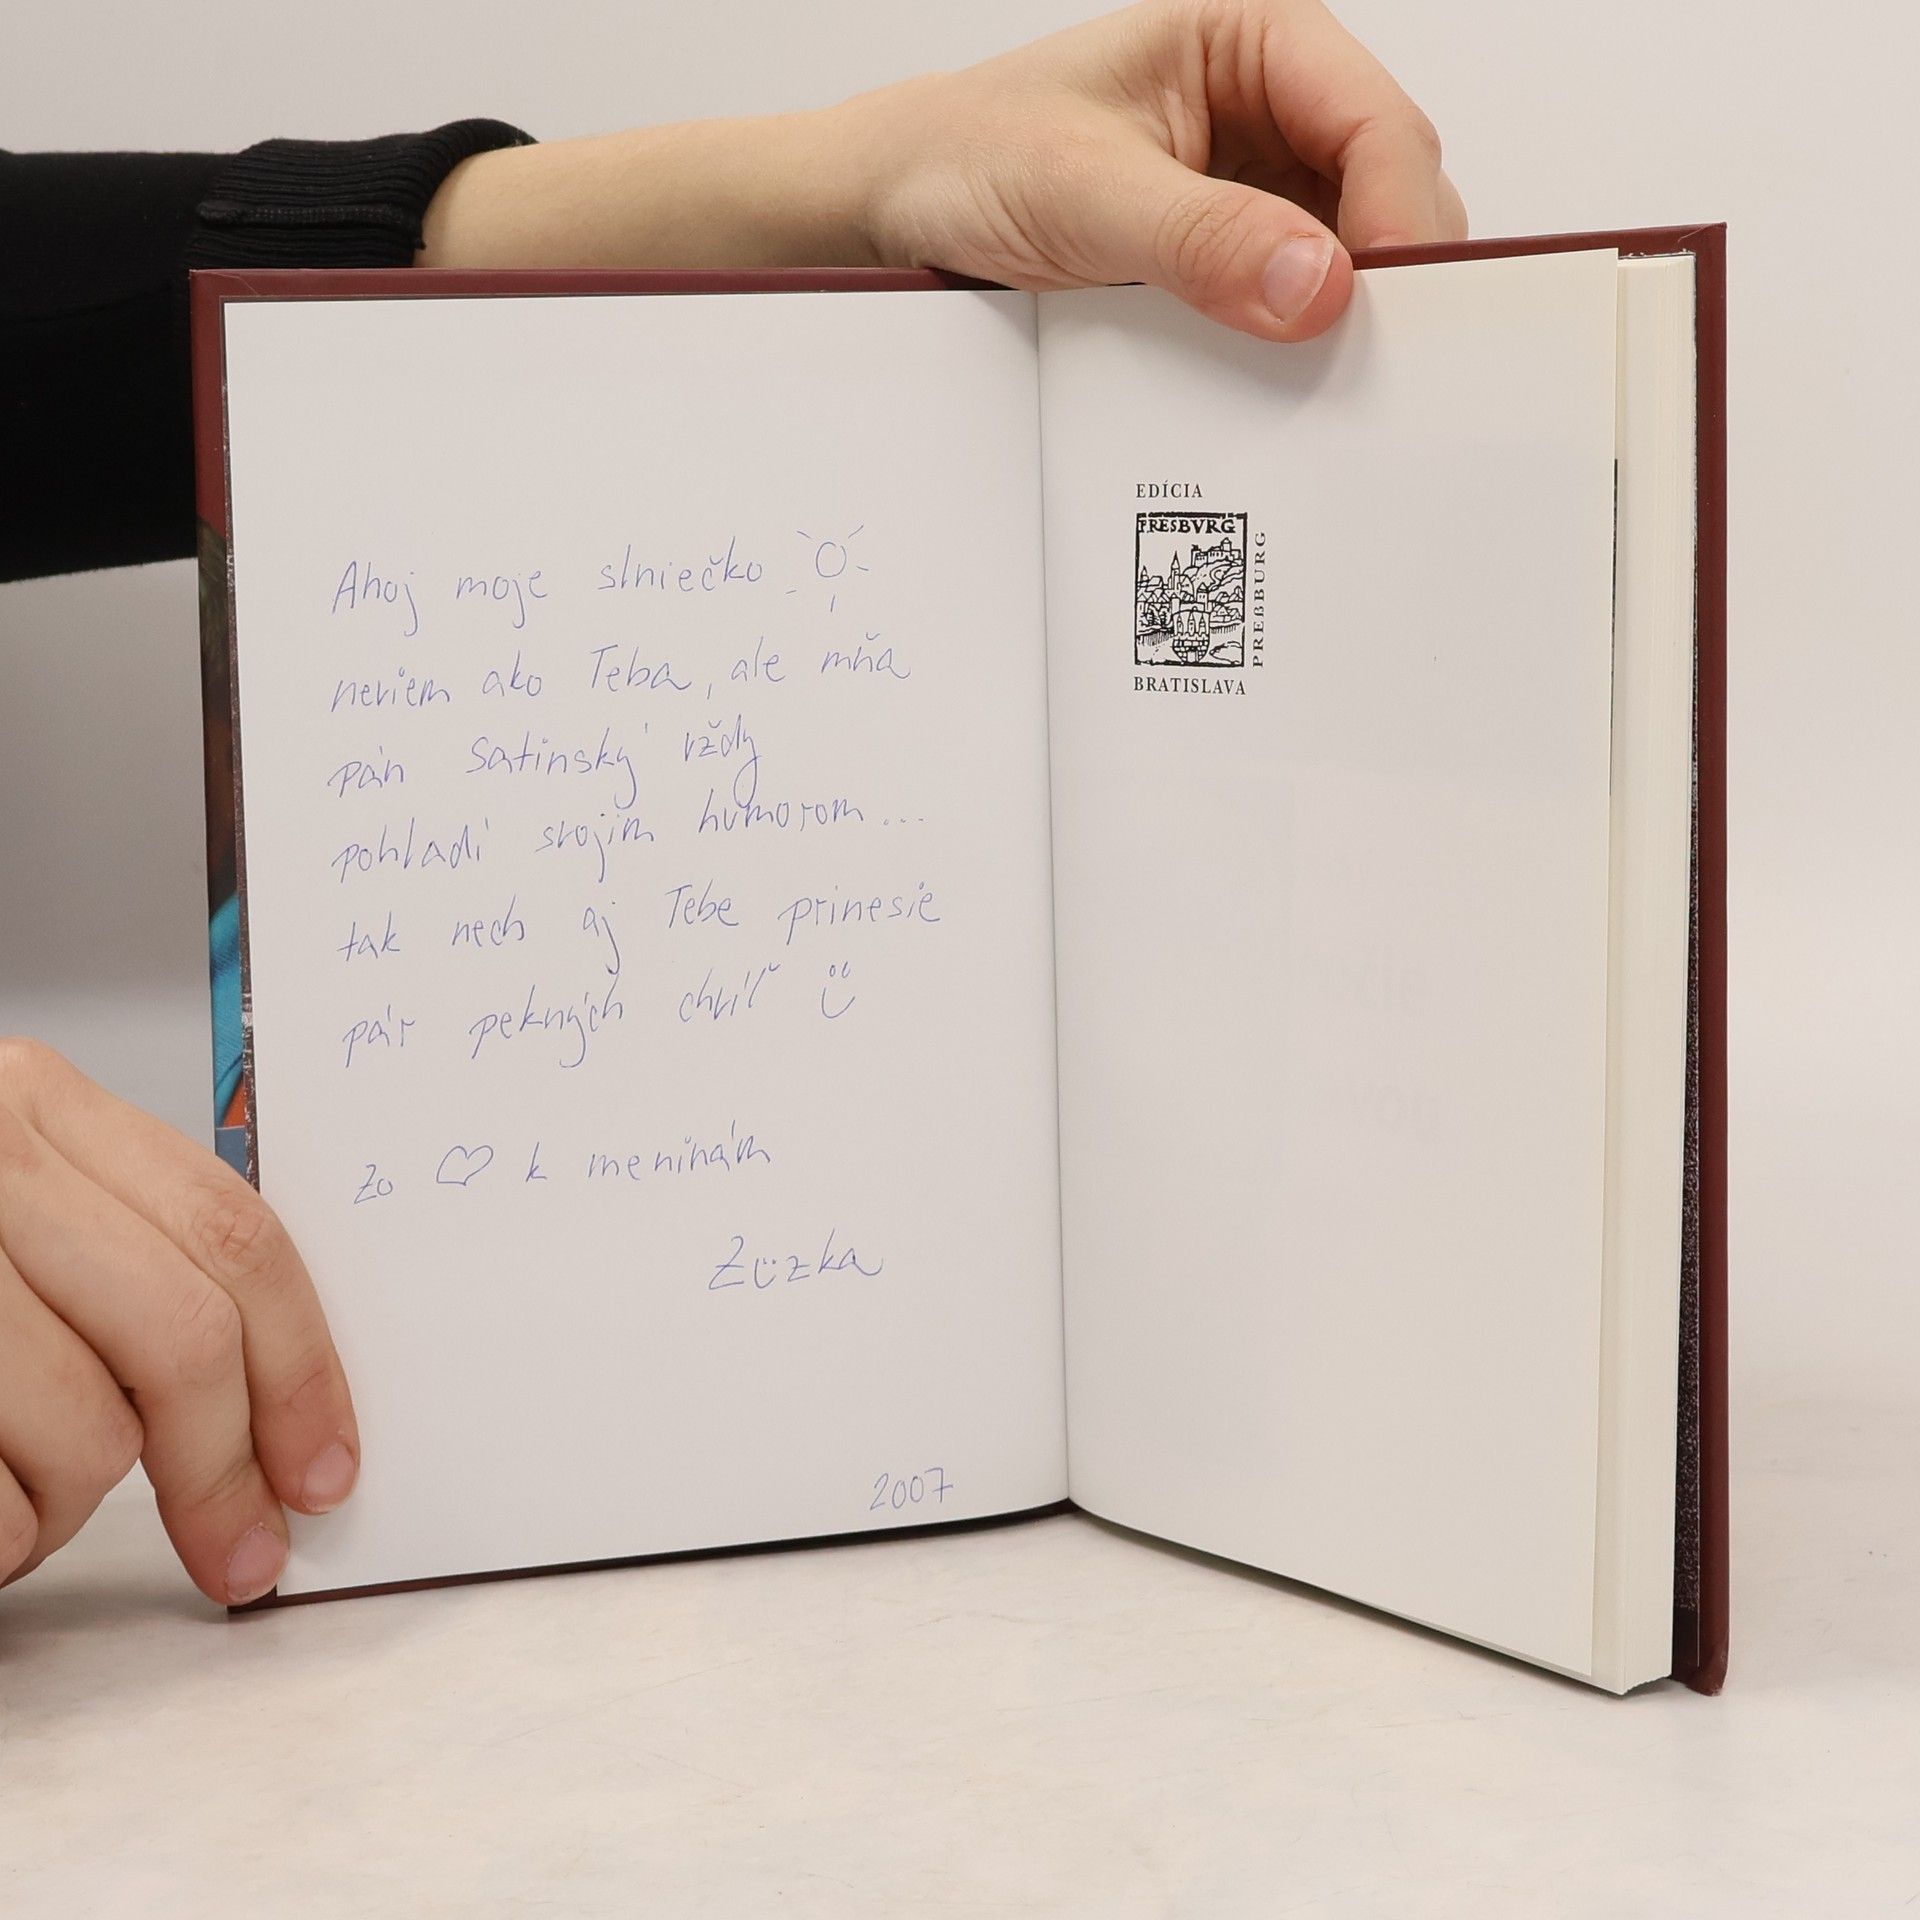 Ahoj moje slniečko
neviem ako Teba, ale mňa
pán Satinský vždy
pohladí svojim humorom...
tak nech aj Tebe prinesie
pár pekných chvíľ
Zo k meninám
Zuzka
2007
EDÍCIA
PRESBVRG
PREßBURG
BRATISLAVA